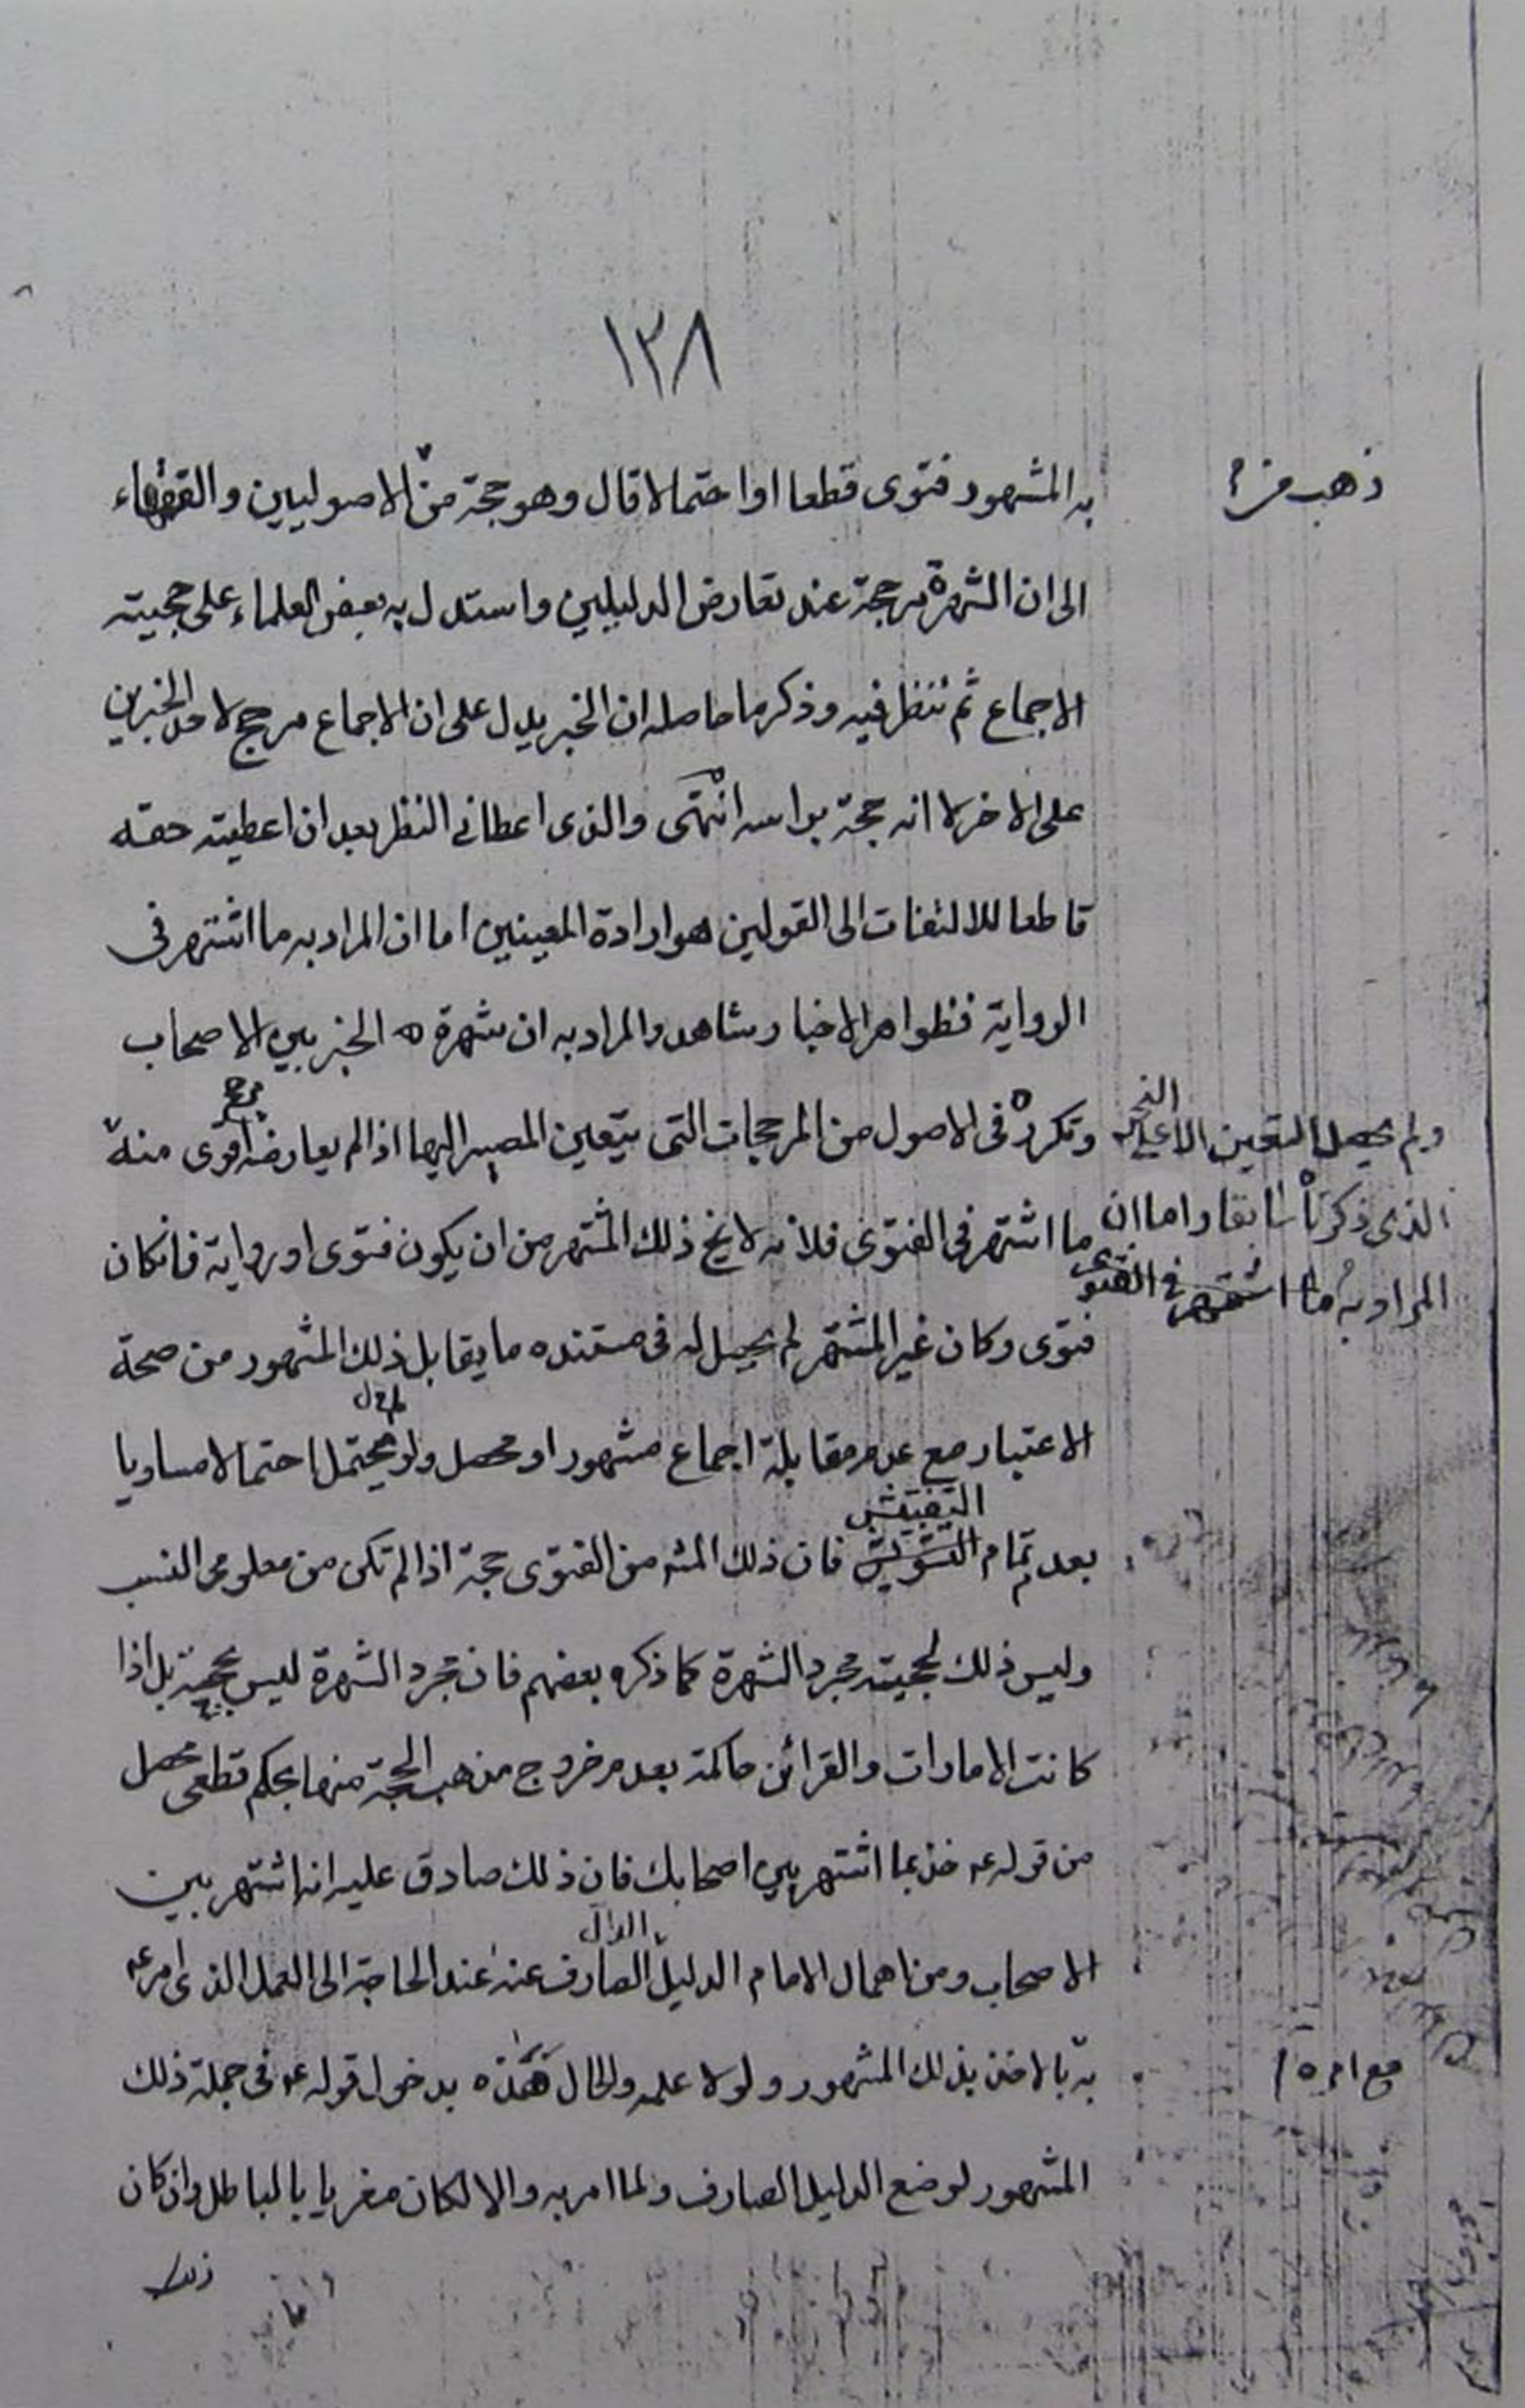 ١٣٨
به المشهور فتوى قطعا او احتمالا قال وهو حجة من الاصوليين والفقهاء
ذهب من
الى ان الشهرة مرجحة عند تعارض الدليلين واستدل به بعض العلماء على حجيته
الاجماع ثم تنظر فيه وذكر ما حاصله ان الخبر يدل على ان الاجماع مرجح لاحد الخبرين
على الاخر لا انه حجة براسه انتهى والذى اعطانى النظر بعد ان اعطيته حقه
قاطعا للالتفات الى القولين هو ارادة المعينين اما ان المراد به ما اشتهر فى
الرواية فظواهر الاخبار شاهد والمراد به ان شهرة الخبر بين الاصحاب
وتكرره فى الاصول من المرجحات التى يتعين المصير اليها اذا لم يعارضه مرجح اقوى منه
ولم يحصل التعين الا على النحو
الذى ذكرناه سابقا واما ان
المراد به ما اشتهر فى الفتوى
ما اشتهر فى الفتوى فلانه لا يخ ذلك المشتهر من ان يكون فتوى او رواية فانكان
فتوى وكان غير المشتهر لم يحصل له فى مستنده ما يقابل ذلك المشهور من صحة
الاعتبار مع عدم مقابلة اجماع مشهور او محصل ولو محتمل احتمالا مساويا
بعد تمام التفتيش فان ذلك المشه من الفتوى حجة اذا لم تكن من معلومى النسب
وليس ذلك لحجيته مجرد الشهرة كما ذكره بعضهم فان مجرد الشهرة ليس بحجة بل اذا
كانت الامارات والقرائن حاكمة بعدم خروج مذهب الحجة منها بحكم قطعى محصل
من قوله ع خذ بما اشتهر بين اصحابك فان ذلك صادق عليه انه اشتهر بين
الاصحاب ومن اهمال الامام الدليل الدال الصارف عنه عند الحاجة الى العمل الذى امر ع
به بالاخذ بذلك المشهور ولولا علمه والحال هذه بدخول قوله ع فى جملة ذلك
مع امره
المشهور لوضع الدليل الصارف ولما امر به والا لكان مغريا بالباطل وان كان
ذلك